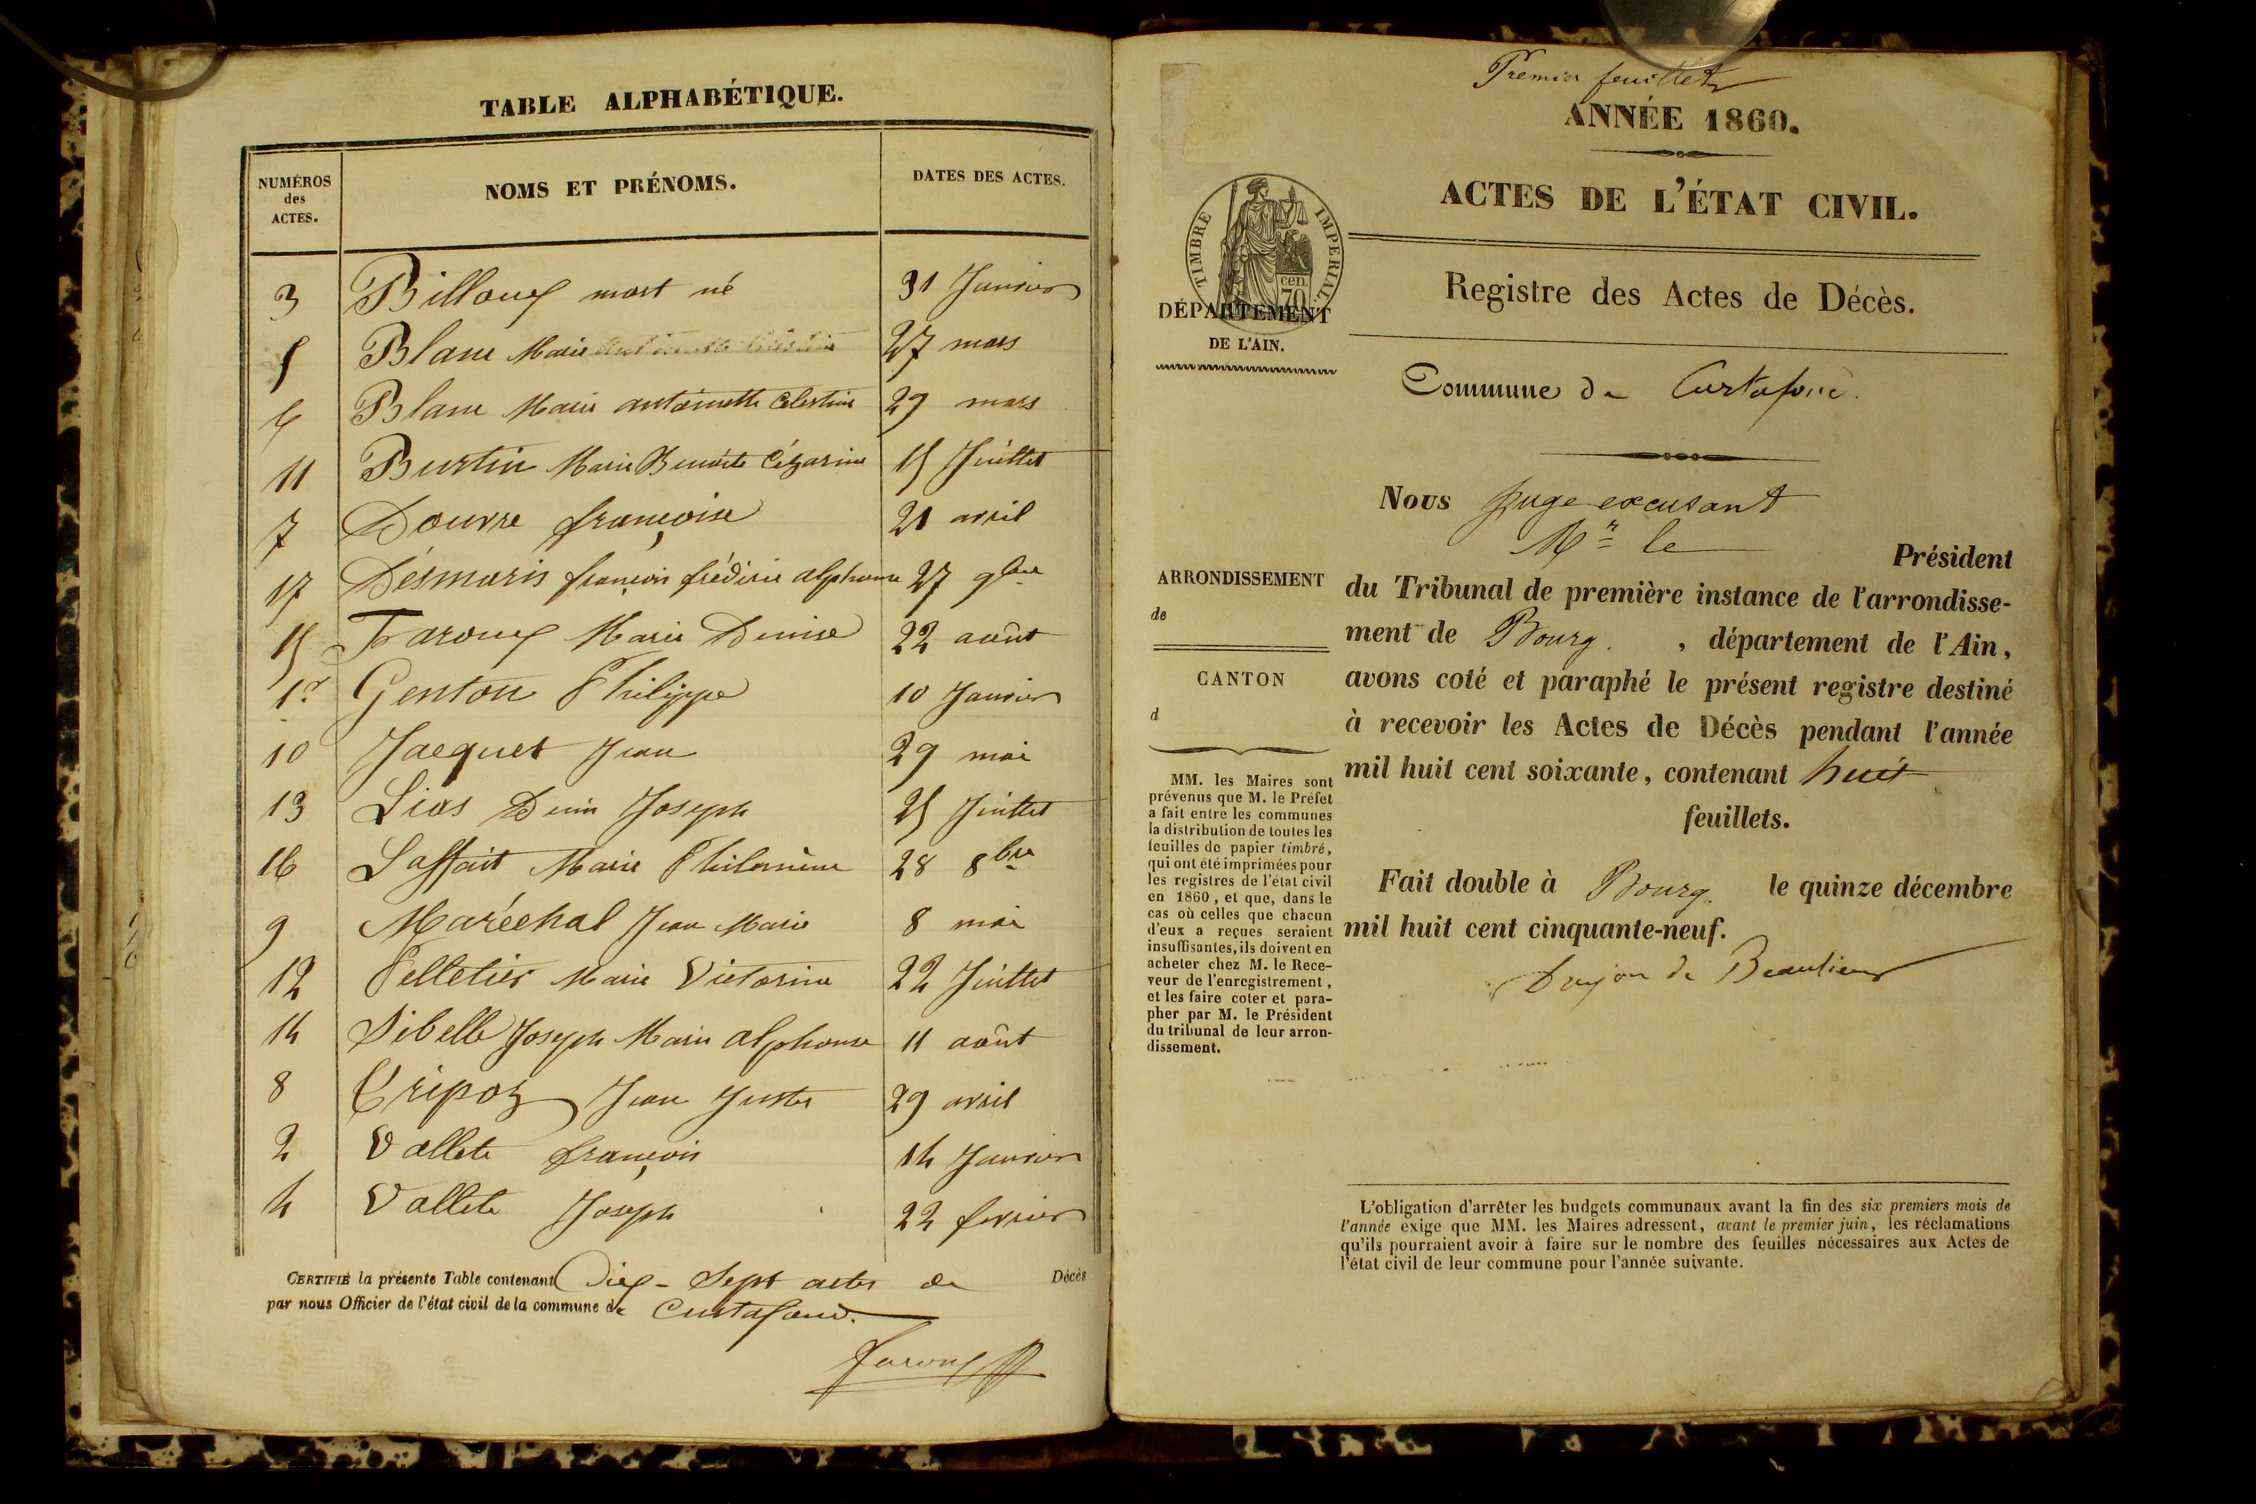 TABLE ALPHABÉTIQUE.
NUMÉROS des ACTES.
NOMS ET PRÉNOMS.
DATES DES ACTES.
3 Billoux mort né 31 Janvier
5 Blanc Marie 27 mars
6 Blanc Marie antoinette Celestine 29 mars
11 Burtin Marie Benoite Cézarine 15 Juillet
7 Douvre françoise 21 avril
17 Désmaris françois frédéric alphonse 27 9bre
15 Faroux Marie Denise 22 août
1r Genton Philippe 10 Janvier
10 Jacquet Jean 29 mai
13 Lias Denis Joseph 25 Juillet
16 Laffait Marie Philomène 28 8bre
9 Maréchal Jean Marie 8 mai
12 Pelletier Marie Victorine 22 Juillet
14 Sibelle Joseph Marie alphonse 11 août
8 Tripoz Jean Juster 29 avril
2 Vallete françois 14 Janvier
4 Vallete Joseph 22 fevrier
CERTIFIÉ la présente Table contenant Dix-Sept actes de Décès
par nous Officier de l'état civil de la commune de Curtafond.
faroux
Premier feuillet
ANNÉE 1860.
ACTES DE L'ÉTAT CIVIL.
TIMBRE IMPERIAL
cen.
70
DÉPARTEMENT
DE L'AIN.
Registre des Actes de Décès.
Commune de Curtafond.
Nous Juge excusant
Mr le
Président
ARRONDISSEMENT
de
CANTON
d
du Tribunal de première instance de l'arrondisse-
ment de Bourg. , département de l'Ain,
avons coté et paraphé le présent registre destiné
à recevoir les Actes de Décès pendant l'année
mil huit cent soixante, contenant huit
feuillets.
MM. les Maires sont
prévenus que M. le Préfet
a fait entre les communes
la distribution de toutes les
feuilles de papier timbré,
qui ont été imprimées pour
les registres de l'état civil
en 1860, et que, dans le
cas où celles que chacun
d'eux a reçues seraient
insuffisantes, ils doivent en
acheter chez M. le Rece-
veur de l'enregistrement,
et les faire coter et para-
pher par M. le Président
du tribunal de leur arron-
dissement.
Fait double à Bourg. le quinze décembre
mil huit cent cinquante-neuf.
Dujon de Beaulieu
L'obligation d'arrêter les budgets communaux avant la fin des six premiers mois de
l'année exige que MM. les Maires adressent, avant le premier juin, les réclamations
qu'ils pourraient avoir à faire sur le nombre des feuilles nécessaires aux Actes de
l'état civil de leur commune pour l'année suivante.